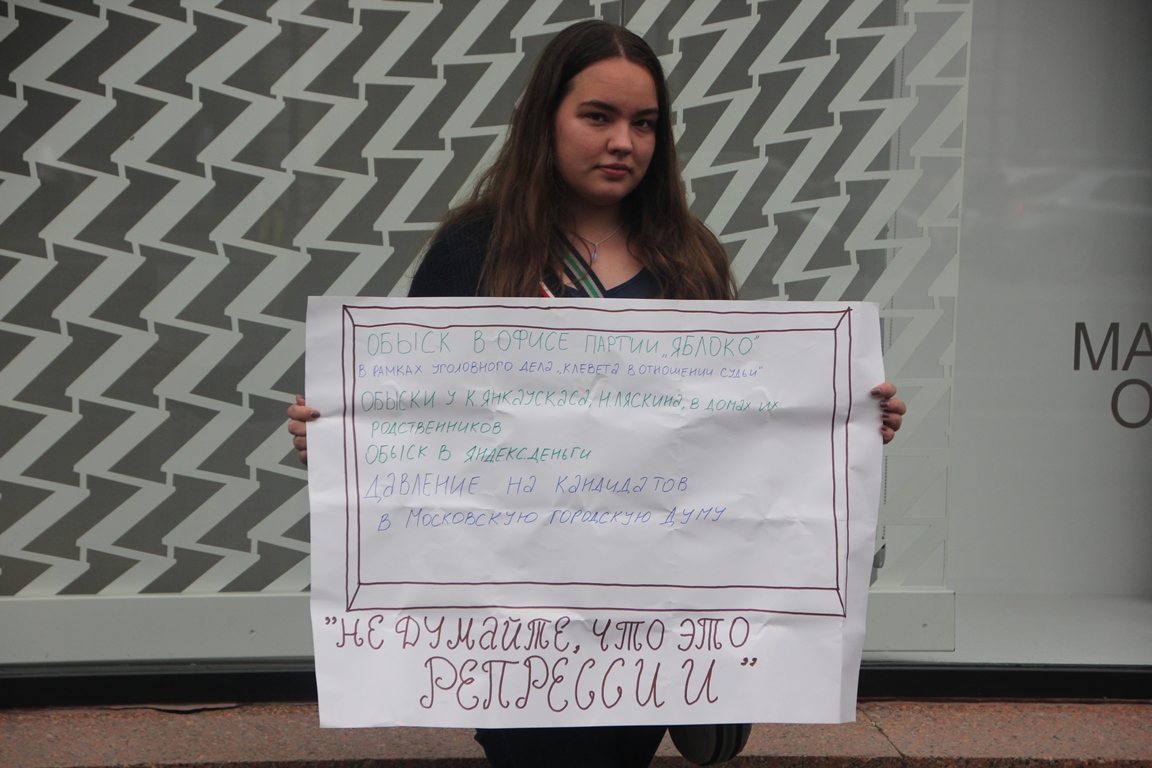 ОБЫСК В ОФИСЕ ПАРТИИ „ЯБЛОКО"
В РАМКАХ УГОЛОВНОГО ДЕЛА „КЛЕВЕТА В ОТНОШЕНИИ СУДЬИ"
ОБЫСКИ У К.ЯНКАУСКАСА, Н.ЛЯСКИНА, В ДОМАХ ИХ
РОДСТВЕННИКОВ
ОБЫСК В ЯНДЕКСДЕНЬГИ
ДАВЛЕНИЕ НА КАНДИДАТОВ
В МОСКОВСКУЮ ГОРОДСКУЮ ДУМУ
"НЕ ДУМАЙТЕ, ЧТО ЭТО
РЕПРЕССИИ"
MA
O